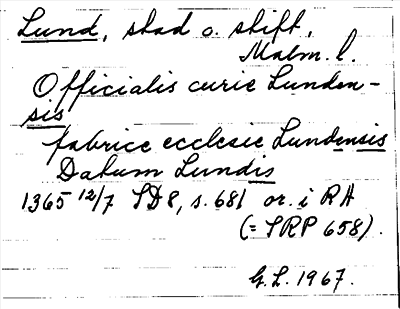 Lund, stad o. stift,
Malm. l.
Officialis curie Lunden-
sis
fabrice ecclesie Lundensis
Datum Lundis
1365 12/7 SD 8, s. 681 or. i RA
(= SRP 658).
G. L. 1967.